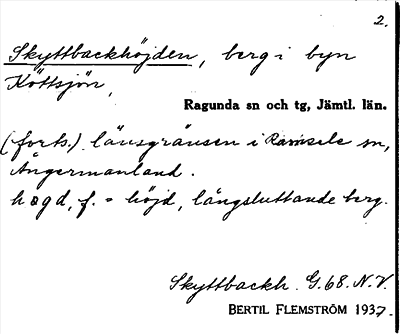 2.
Skyttbackhöjden, berg i byn
Köttsjön,
Ragunda sn och tg, Jämtl. län.
(forts.) länsgränsen i Ramsele sn,
Ångermanland.
høgd, f. = höjd, långsluttande berg.
Skyttbackh. G.68.N.V.
BERTIL FLEMSTRÖM 1937.